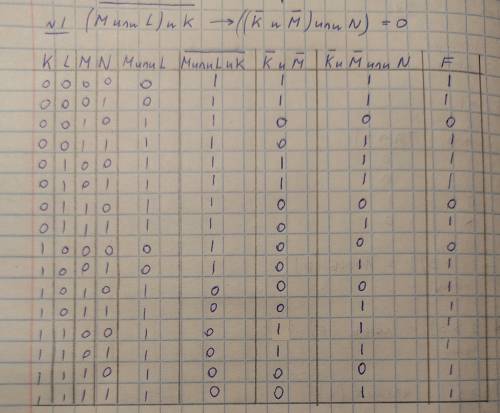 №1 (M или L) и K → ((K̅ и M̅) или N) = 0
K L M N M или L M или L и K K̅ и M̅ K̅ и M̅ или N F
0 0 0 0 0 1 1 1 1
0 0 0 1 0 1 1 1 1
0 0 1 0 1 1 0 0 0
0 0 1 1 1 1 0 1 1
0 1 0 0 1 1 1 1 1
0 1 0 1 1 1 1 1 1
0 1 1 0 1 1 0 0 0
0 1 1 1 1 1 0 1 1
1 0 0 0 0 1 0 0 0
1 0 0 1 0 1 0 1 1
1 0 1 0 1 0 0 0 1
1 0 1 1 1 0 0 1 1
1 1 0 0 1 0 1 1 1
1 1 0 1 1 0 1 1 1
1 1 1 0 1 0 0 0 1
1 1 1 1 1 0 0 1 1